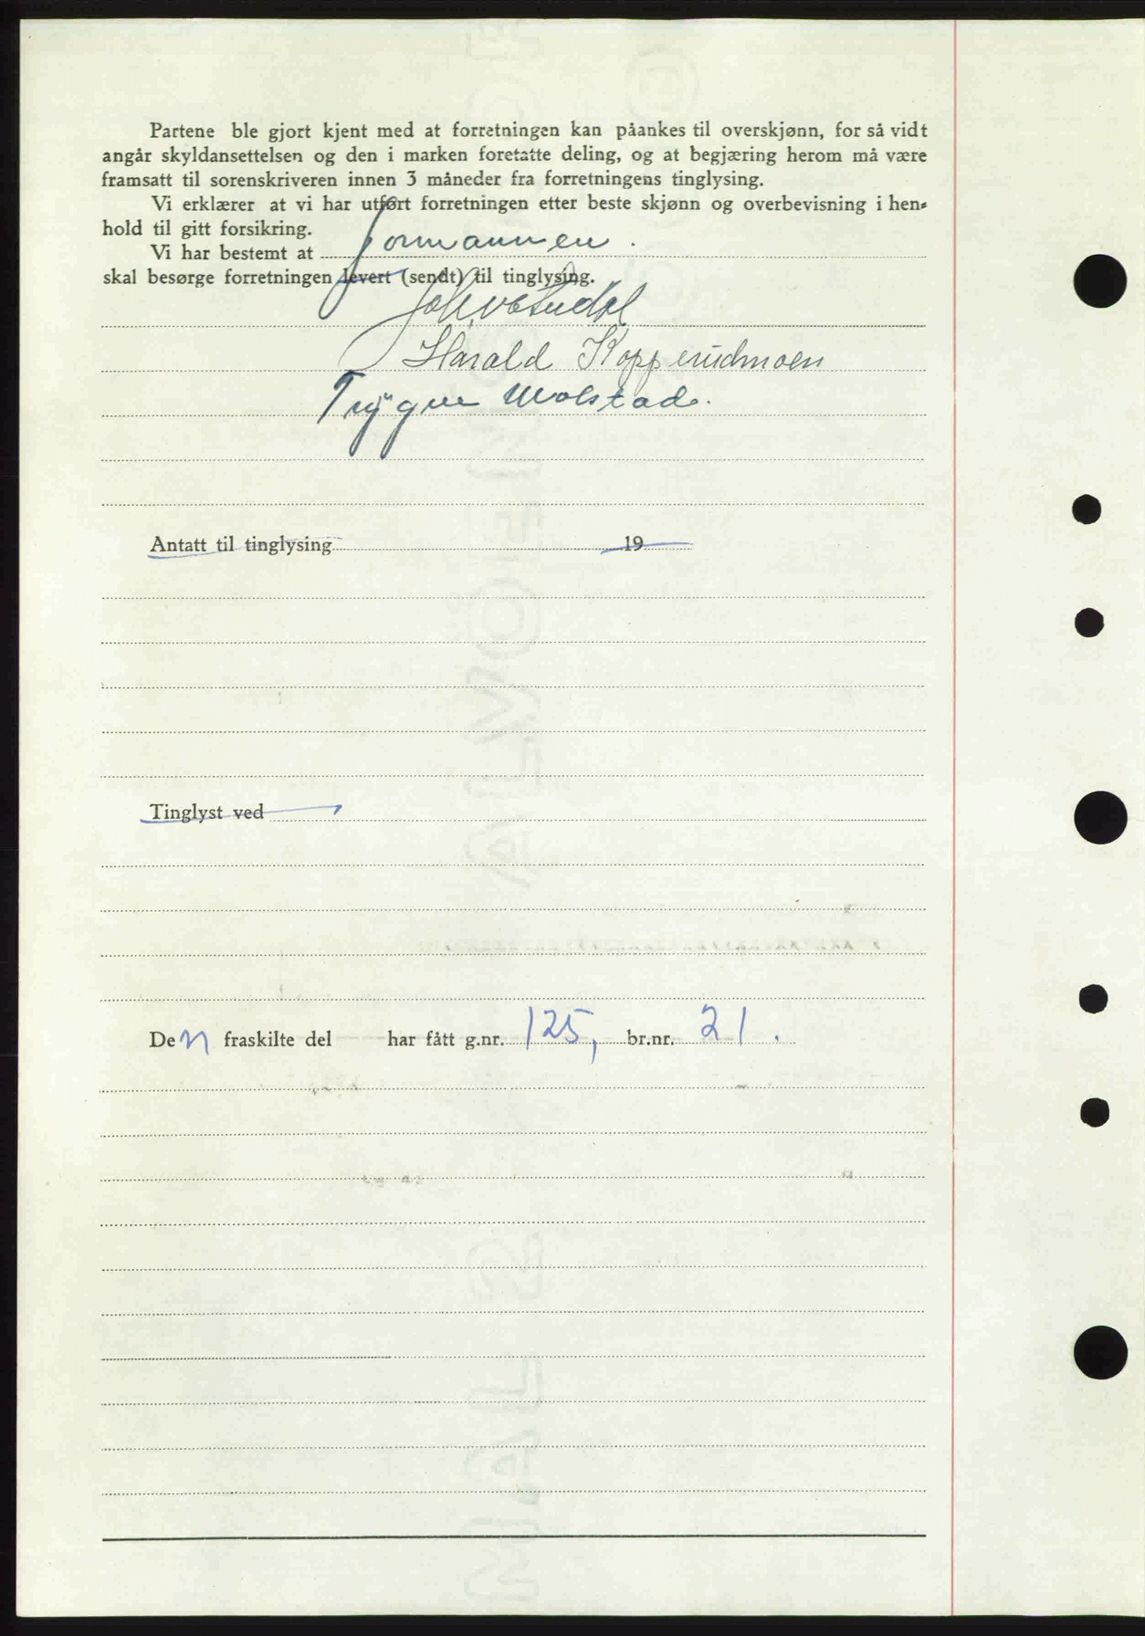 Partene ble gjort kjent med at forretningen kan påankes til overskjønn, for så vidt
angår skyldansettelsen og den i marken foretatte deling, og at begjæring herom må være
framsatt til sorenskriveren innen 3 måneder fra forretningens tinglysing.
Vi erklærer at vi har utført forretningen etter beste skjønn og overbevisning i hen-
hold til gitt forsikring.
Vi har bestemt at formannen.
skal besørge forretningen levert (sendt) til tinglysing.
Harald Kopperudmoen
Trygve Molstad.
Antatt til tinglysing 19
Tinglyst ved
Den fraskilte del har fått g.nr. 125, br.nr. 21.